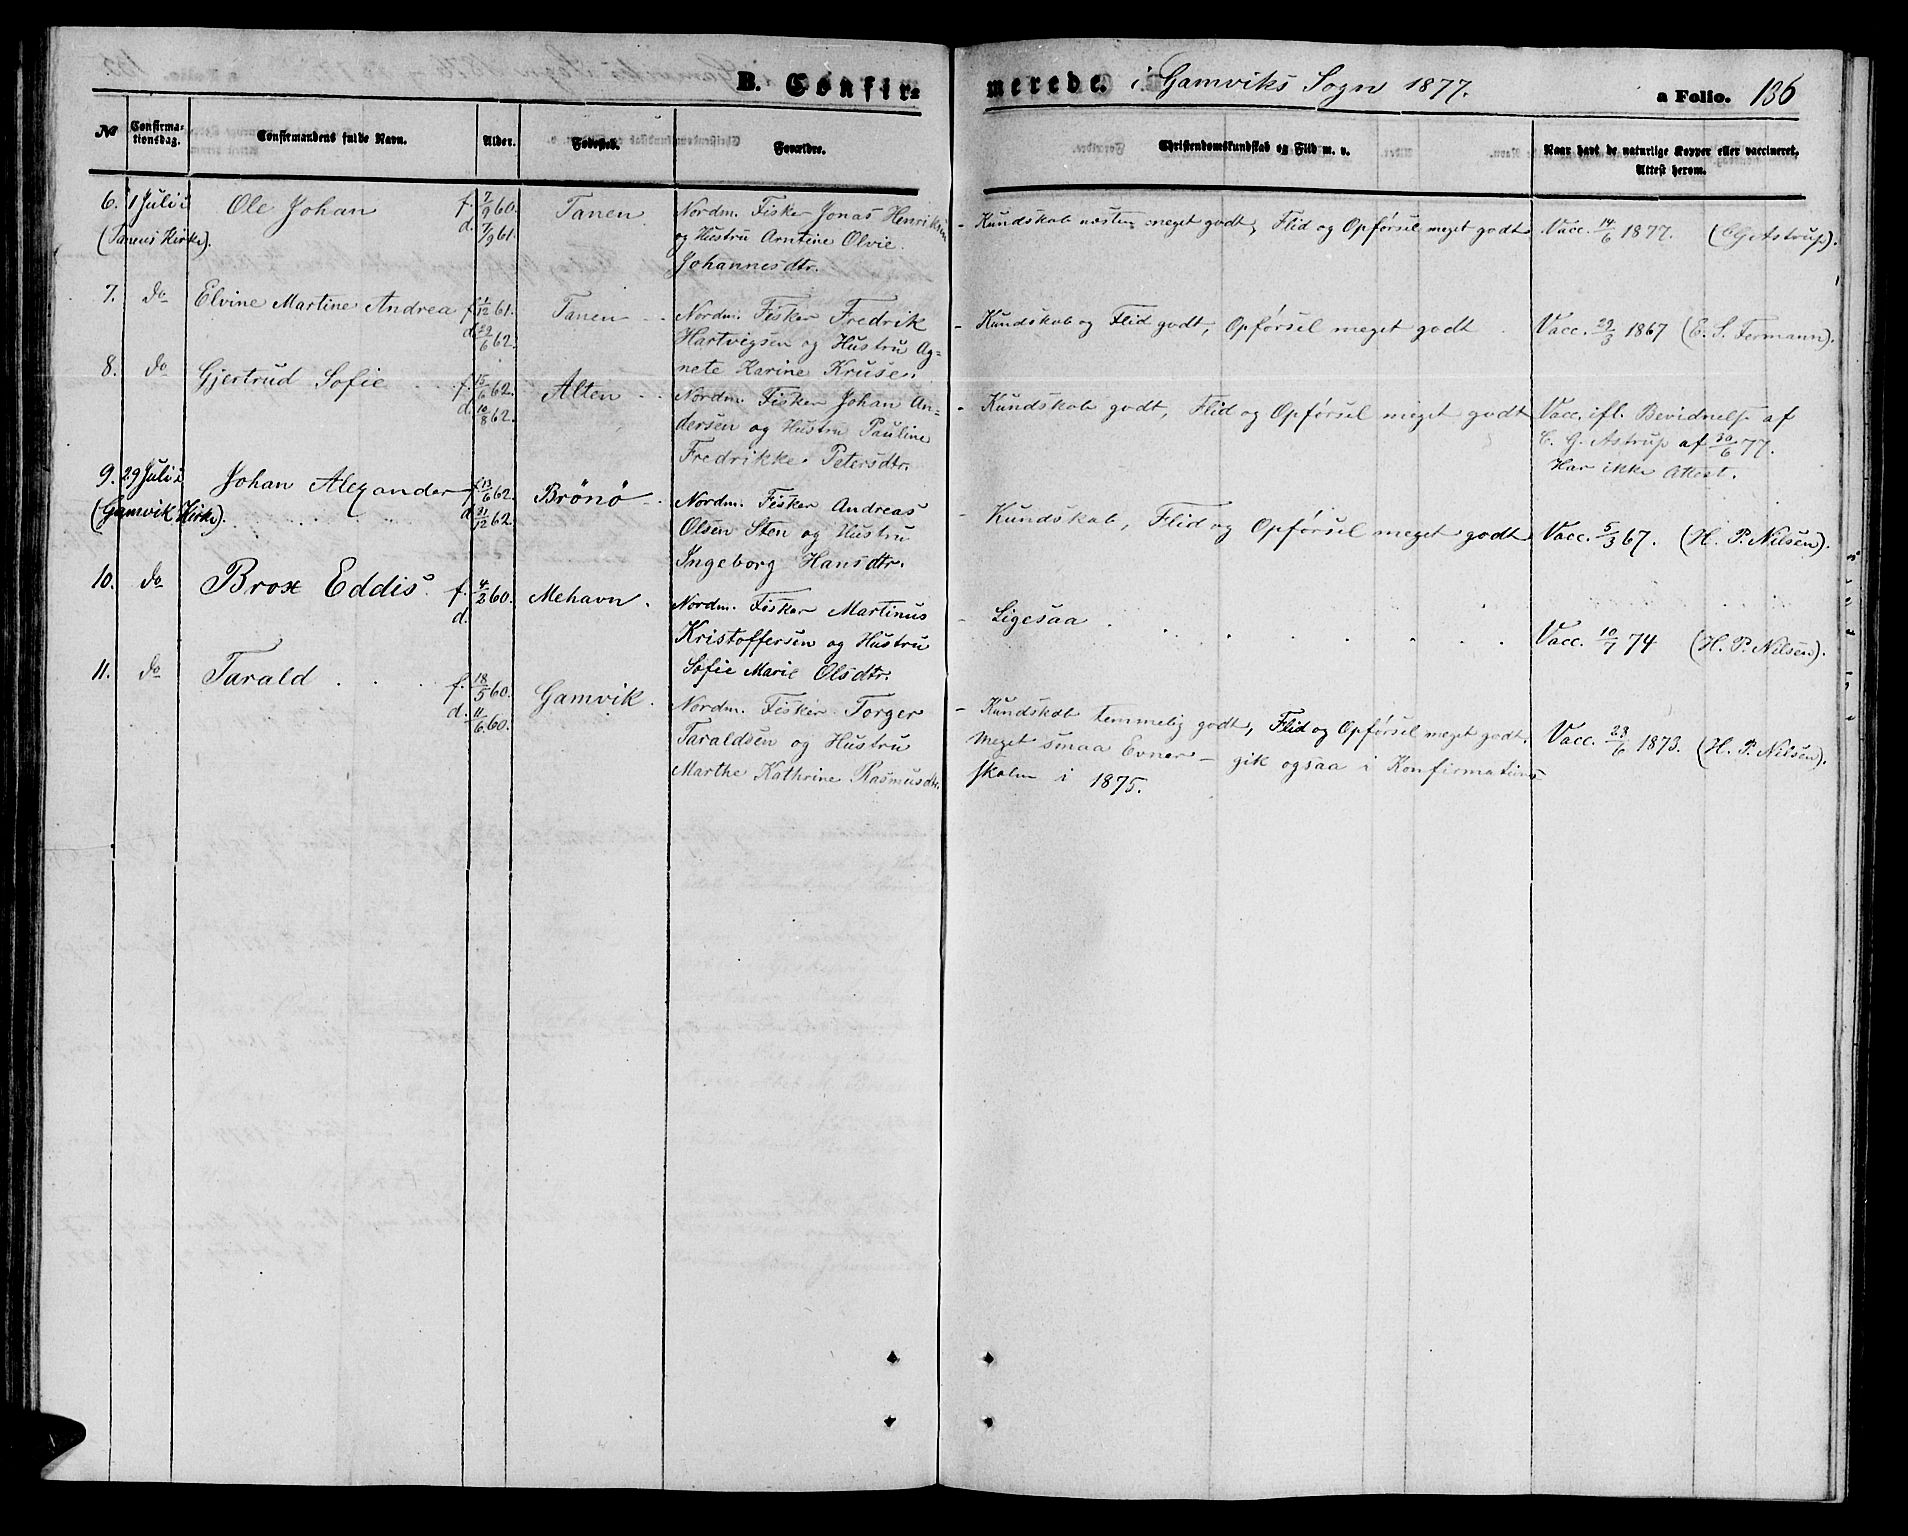 B. Confirmerede. i Gamviks Sogn 1877. a Folio. 136
No Confirmationsdag. Confirmandens fulde Navn. Alder. Fødested. Forældre. Christendomskundskab og Flid m. v. Naar havt de naturlige Kopper eller vaccineret, Attest herom.
6. 1 Juli i Ole Johan f. 7/9 60. Tanen Nordm. Fisker Jonas Henriksen - Kundskab næsten meget godt, Flid og Opførsel meget godt Vacc. 14/6 1877. (C. G. Astrup).
(Tanens Kirke). d. 7/9 61. og Hustru Arntine Olvie
Johannesdtr.
7. do Elvine Martine Andrea f. 1/12 61. Tanen Nordm. Fisker Fredrik - Kundskab og Flid godt, Opførsel meget godt Vacc. 29/3 1867 (E. S. Fermann).
d. 29/6 62. Hartvigsen og Hustru Ag=
nete Karine Kruse.
8. do Gjertrud Sofie f. 15/6 62. Alten Nordm. Fisker Johan An- - Kundskab godt, Flid og Opførsel meget godt Vacc. ifl. Bevidnelse af
d. 10/8 62. dersen og Hustru Pauline C. G. Astrup af 30/6 77.
Fredrikke Petersdtr. Har ikke Attest.
9. 29 Juli i Johan Alexander f. 13/6 62. Brönö Nordm. Fisker Andreas - Kundskab, Flid og Opførsel meget godt Vacc. 5/3 67. (H. P. Nilsen).
(Gamvik Kirke). d. 31/12 62. Olsen Sten og Hustru
Ingeborg Hansdtr.
10. do Brox Eddis. f. 4/2 60. Mehavn. Nordm. Fisker Martinus - Ligesaa Vacc. 10/7 74 (H. P. Nilsen).
d. Kristoffersen og Hustru
Sofie Marie Olsdtr.
11. do Tarald f. 18/5 60. Gamvik. Nordm. Fisker Torger - Kundskab temmelig godt, Flid og Opførsel meget godt. Vacc. 23/6 1873. (H. P. Nilsen).
d. 11/6 60. Taraldsen og Hustru Meget smaa Evner - gik ogsaa i Konfirmations-
Marthe Kathrine Rasmusdtr. skolen i 1875.